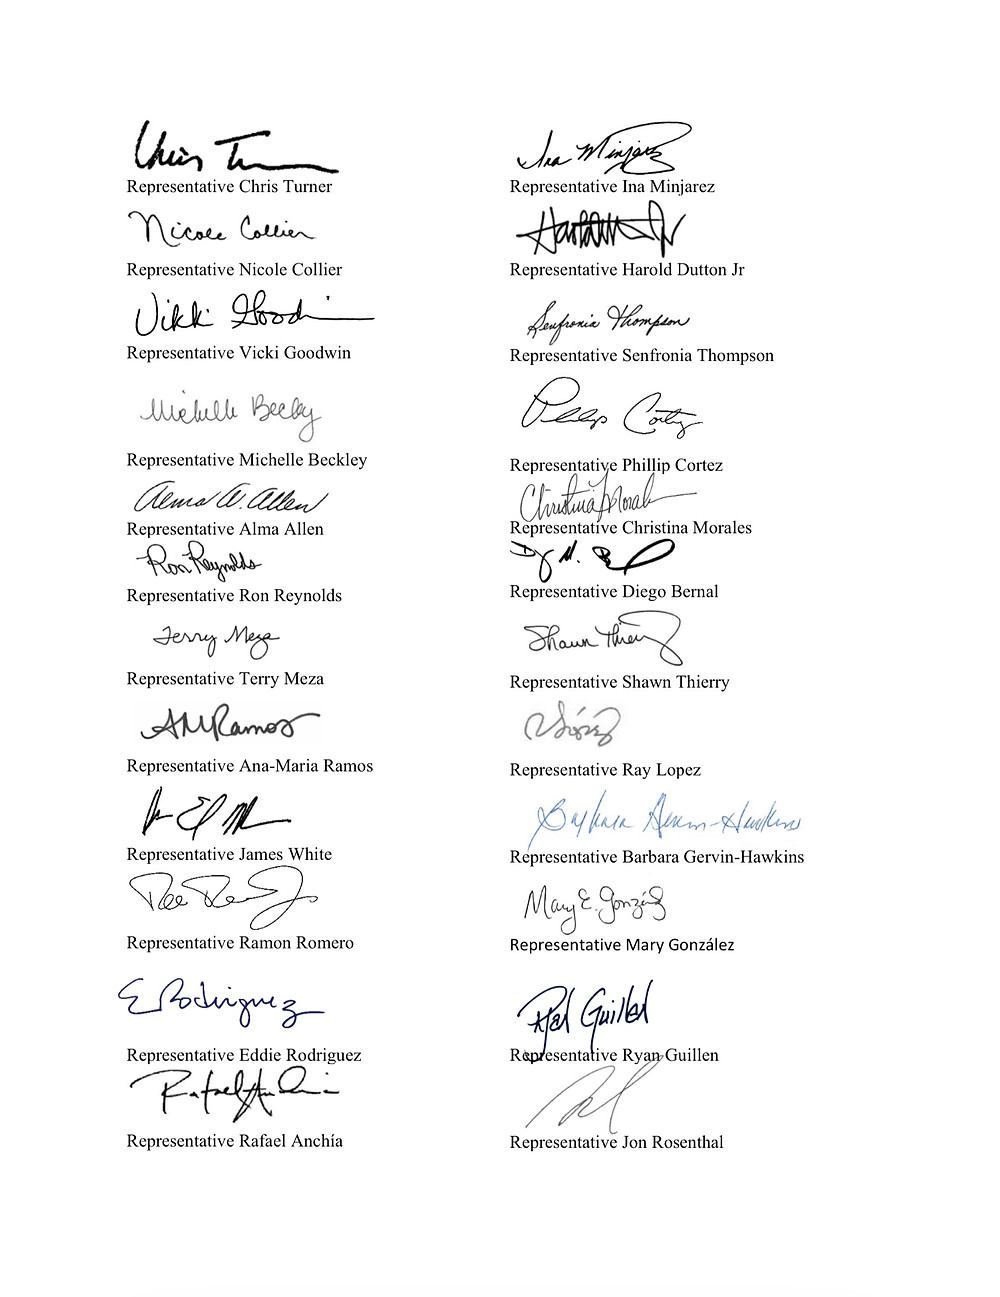 Chris Turner
Representative Chris Turner
Nicole Collier
Representative Nicole Collier
Vikki Goodwin
Representative Vicki Goodwin
Michelle Beckley
Representative Michelle Beckley
Alma A. Allen
Representative Alma Allen
Ron Reynolds
Representative Ron Reynolds
Terry Meza
Representative Terry Meza
AMRamos
Representative Ana-Maria Ramos
Representative James White
Representative Ramon Romero
E Rodriguez
Representative Eddie Rodriguez
Rafael Anchia
Representative Rafael Anchía
Ina Minjarez
Representative Ina Minjarez
Representative Harold Dutton Jr
Senfronia Thompson
Representative Senfronia Thompson
Philip Cortez
Representative Phillip Cortez
Christina Morales
Representative Christina Morales
Representative Diego Bernal
Shawn Thierry
Representative Shawn Thierry
Representative Ray Lopez
Barbara Gervin-Hawkins
Representative Barbara Gervin-Hawkins
Mary E. González
Representative Mary González
Guillen
Representative Ryan Guillen
Representative Jon Rosenthal